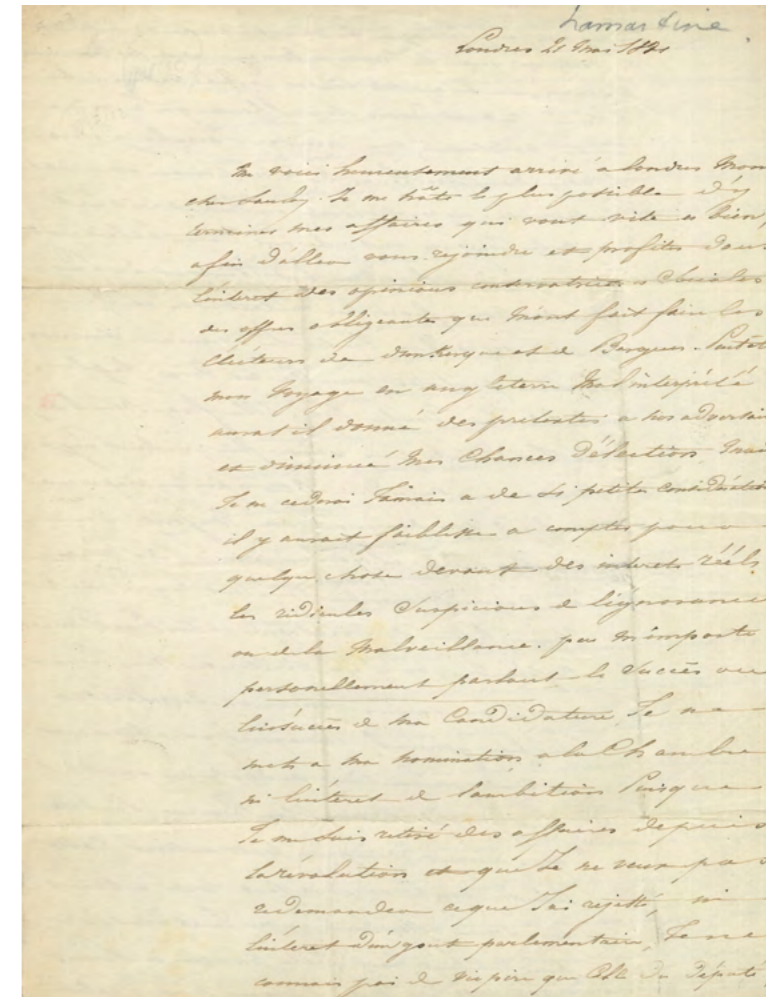 Lamartine
Londres 21 Mai 1831
me voici heureusement arrivé a londres Mon
cher Saudey. Je me hâte le plus possible d'y
terminer mes affaires qui vont vite et bien,
afin d'aller vous rejoindre et profiter dans
l'interet des opinions conservatrices &
des offres obligeantes que m'ont fait faire les
électeurs de dunkerque et de Bergues. Peutêt
mon Voyage en angleterre Mal interprété
aurat il donné des pretextes a nos adversai
et diminué Mes Chances d'élection Mais
Je ne cederai Jamais a de si petites considération
il y aurait faiblesse a compter pour
quelque chose devant des interets réels
les ridicules Suspicions de l'ignorance
ou de la Malveillance. peu m'importe
personellement partant le Succès ou
l'insuccès de ma Candidature Je ne
mets a ma nomination a la Chambre
ni l'interet de l'ambition Puisque
Je me suis retiré des affaires depuis
la révolution et que Je ne veux pas
redemander ce que J'ai rejetté, ni
l'interet d'un gout parlementaire, Je ne
connais pas de pire que Celle du Député